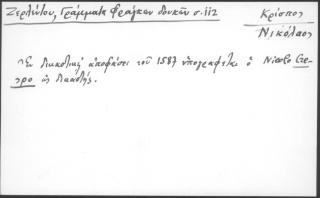 Ζερλέντου, Γράμματα Φράγκων δουκῶν σ. 112
Κρίσπος
Νικόλαος
Ἐν δικαστικῇ ἀποφάσει τοῦ 1587 ὑπογράφεται ὁ Nicolo
ὡς δικαστής.